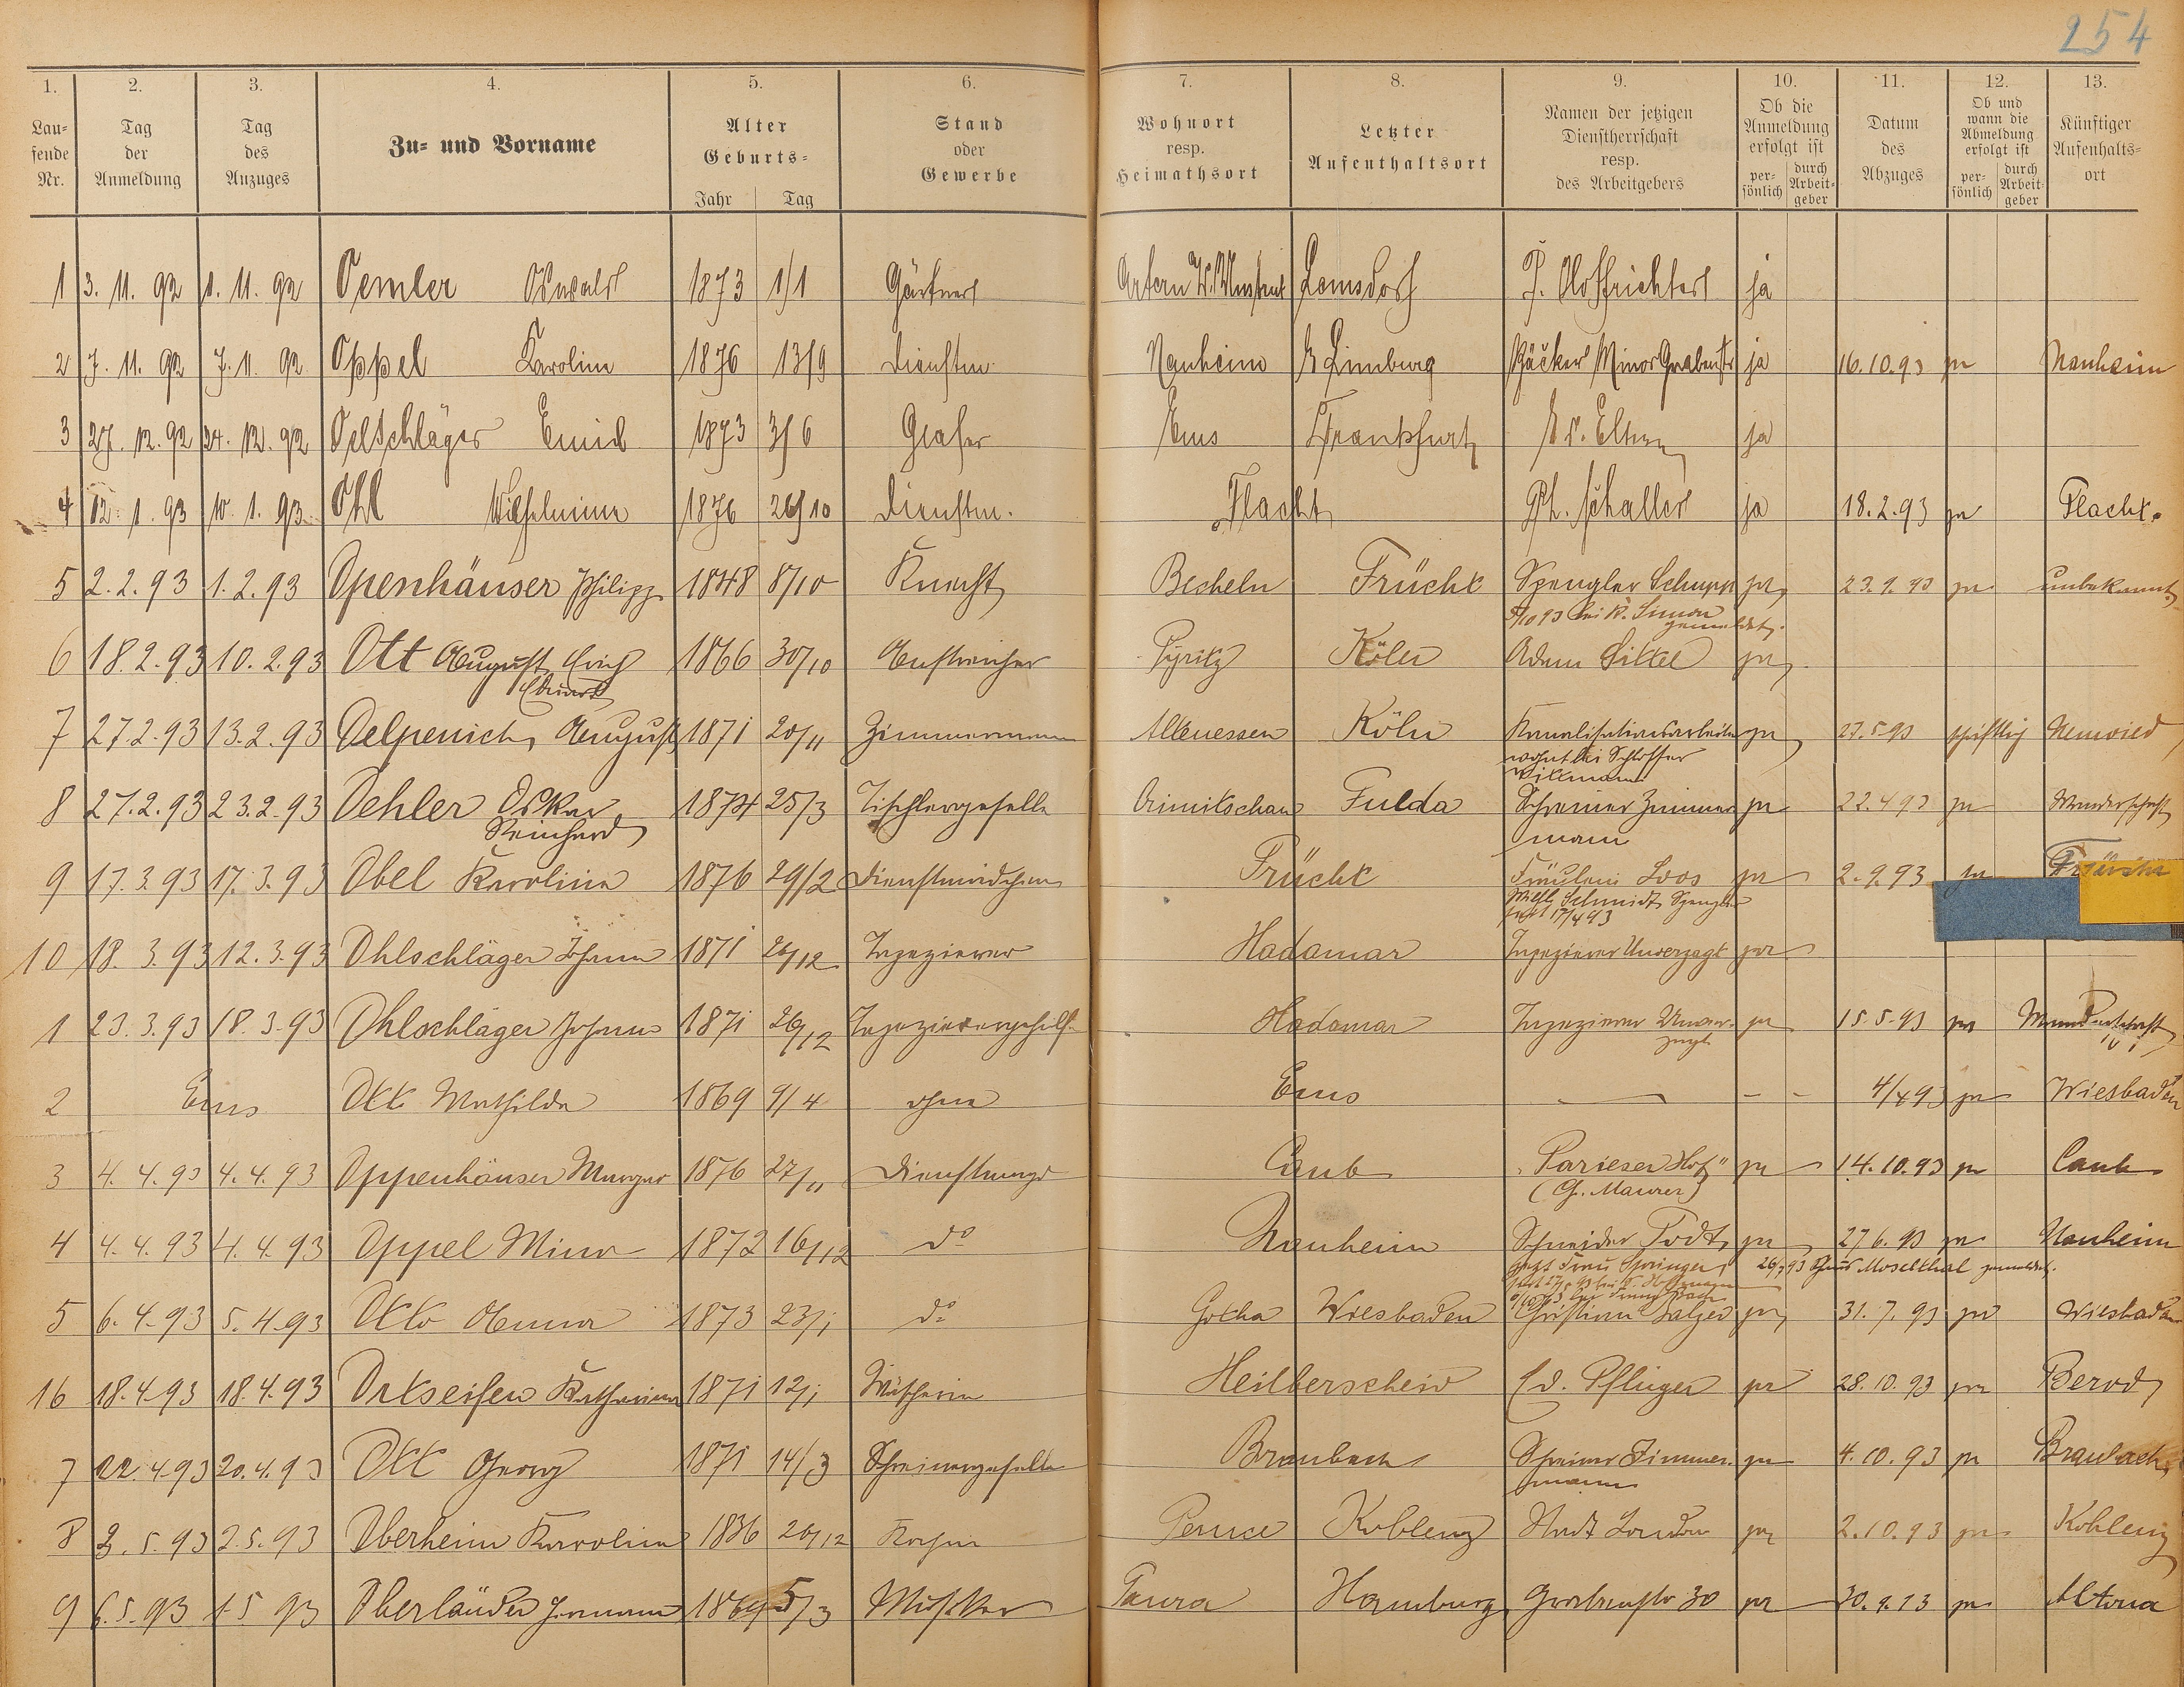 254
1. 2. 3. 4. 5. 6. 7. 8. 9. 10. 11. 12. 13.
Lau-
fende
Nr.
Tag
der
Anmeldung
Tag
des
Anzuges
Zu- und Vorname
Alter
Geburts-
Jahr Tag
Stand
oder
Gewerbe
Wohnort
resp.
Heimathsort
Letzter
Aufenthaltsort
Namen der jetzigen
Dienstherrschaft
resp.
des Arbeitgebers
Ob die
Anmeldung
erfolgt ist
per-
sönlich
durch
Arbeit-
geber
Datum
des
Abzuges
Ob und
wann die
Abmeldung
erfolgt ist
per-
sönlich
durch
Arbeit-
geber
Künftiger
Aufenthalts-
ort
1 3. 11. 92 1. 11. 92 Oemler Oswald 1873 1/1 Gärtner Artern ja
2 7. 11. 92 7. 11. 92 Oppel Karoline 1876 13/9 Dienstm. Nauheim Limburg Bäcker Minor Grabenstr ja 16.10.93 ja Nauheim
3 27. 12. 92 24. 12. 92 Oelschläger Emil 1873 3/6 Ems Frankfurt ja
4 12. 1. 93 10. 1. 93 Ohl Wilhelmine 1876 26/10 Dienstm. Flacht Ph. Schaller ja 18.2.93 ja Flacht.
5 2.2.93 1.2.93 Openhäuser Philipp 1848 8/10 Knecht Becheln Frücht Spengler Schupp ja 23.9.93 ja unbekannt
bei K. Simon
gemeldet.
6 18.2.93 10.2.93 Ott August Erich 1866 30/10 Anstreicher Pyritz Köln Adam Sittel ja
Eduard
7 27.2.93 13.2.93 Oelpenich, August 1871 20/11 Zimmermann Altenessen Köln Kanalisationsarbeiter ja 27.5.93 schriftlich Neuwied
wohnt bei Schlosser
Willmann
8 27.2.93 23.2.93 Oehler Oskar 1874 25/3 Tischlergeselle Crimitschau Fulda Schreiner Zimmer ja 22.4.93 ja Wanderschaft
Reinhard mann
9 17.3.93 17.3.93 Obel Karoline 1876 29/2 Dienstmädchen Frücht Fräulein Loos ja 2.9.93 ja
Wilh. Schmidt Spengler
17/4 93
10 18.3.93 12.3.93 Ohlschläger Johann 1871 26/12 Tapezierer Hadamar Tapezierer Unverzagt ja
1 23.3.93 18.3.93 Ohlschläger Johann 1871 26/12 Tapezierergehilfe Hadamar Tapezierer Unver- ja 15.5.93 ja Wanderschaft
zagt
2 Ems Ott Mathilde 1869 9/4 ohne Ems — - - 4/4 93 ja Wiesbaden
3 4.4.93 4.4.93 Oppenhäuser Margar 1876 27/11 Dienstmagd Caub „Pariser Hof“ ja 14.10.93 ja Caub
(G. Maurer)
4 4.4.93 4.4.93 Oppel Mina 1872 16/12 do Nauheim Schneider Todt, ja 27.6.93 ja Nauheim
jetzt Frau Springer, 26/7 93 Moselthal gemeldet.
5 6.4.93 5.4.93 Otto Anna 1873 23/1 do Gotha Wiesbaden Christian Balzer ja 31.7.93 ja Wiesbaden
16 18.4.93 18.4.93 Ortseifen Katharina 1871 12/1 Heilberscheid Ed. Pflüger ja 28.10.93 ja Berod
7 22.4.93 20.4.93 Ott Georg 1871 14/3 Schreinergeselle Braubach Schreiner Zimmer- ja 4.10.93 ja Braubach
mann
8 3.5.93 2.5.93 Oberheim Karoline 1836 20/12 Köchin Koblenz Stadt London ja 2.10.93 ja Koblenz
9 6.5.93 1.5.93 Oberländer Hermann 1869 5/3 Musiker Taura Hamburg Grabenstr 30 ja 30.9.93 ja Altona